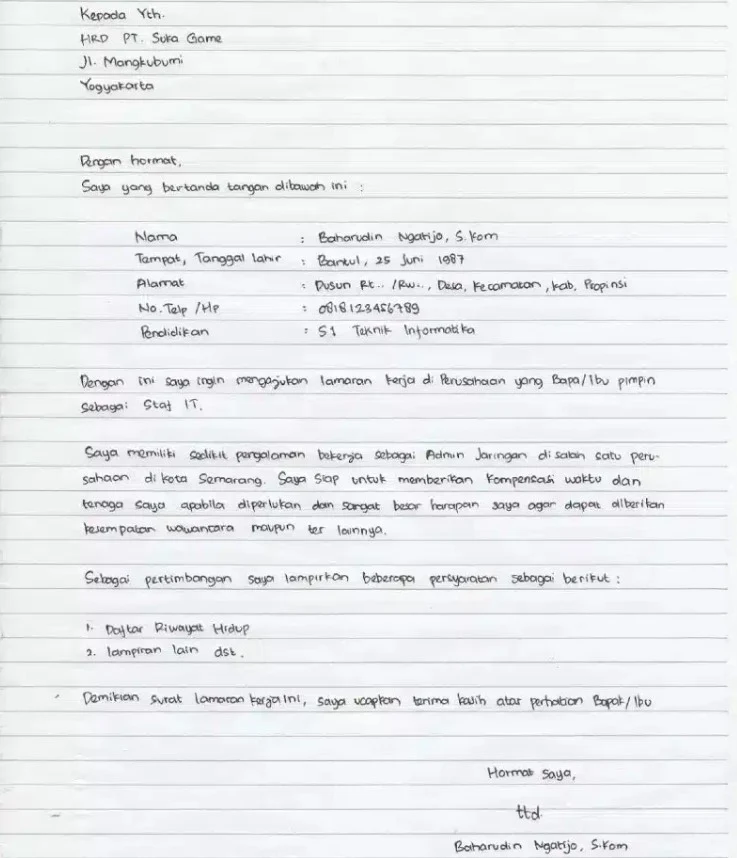 Kepada Yth.
HRD PT. Suka Game
Jl. Mangkubumi
Yogyakarta
Dengan hormat,
Saya yang bertanda tangan dibawah ini :
Nama : Baharudin Ngatijo, S.Kom
Tempat, Tanggal lahir : Bantul, 25 Juni 1987
Alamat : Dusun Rt.. /Rw.., Desa, Kecamatan, Kab, Propinsi
No. Telp /Hp : 0818123456789
Pendidikan : S1 Teknik Informatika
Dengan ini saya ingin mengajukan lamaran kerja di Perusahaan yang Bapa/Ibu pimpin
sebagai Staf IT.
Saya memiliki sedikit pengalaman bekerja sebagai Admin Jaringan di salah satu peru-
sahaan di kota Semarang. Saya siap untuk memberikan kompensasi waktu dan
tenaga saya apabila diperlukan dan sangat besar harapan saya agar dapat diberikan
kesempatan wawancara maupun tes lainnya.
Sebagai pertimbangan saya lampirkan beberapa persyaratan sebagai berikut :
1. Daftar Riwayat Hidup
2. lampiran lain dst.
Demikian surat lamaran kerja ini, saya ucapkan terima kasih atas perhatian Bapak/Ibu
Hormat saya,
ttd
Baharudin Ngatijo, S.Kom